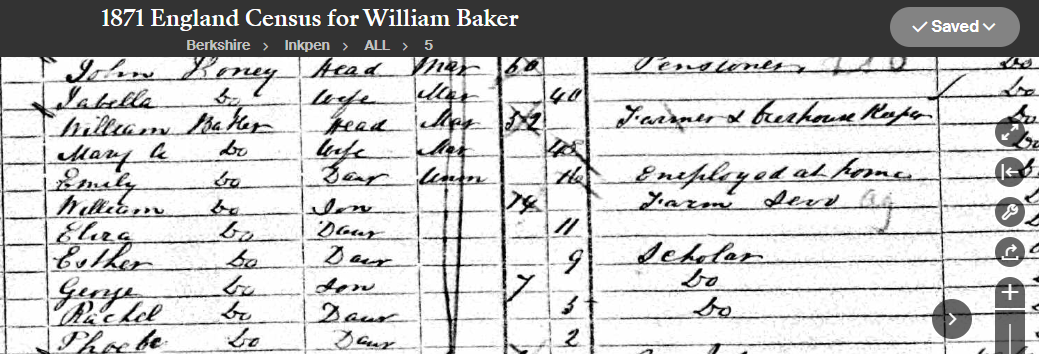 1871 England Census for William Baker
Saved
Berkshire > Inkpen > ALL > 5
John Head Mar 60 Pensioner Do
Isabella Do Wife Mar 40 Do
William Baker Head Mar 52 Farmer & Beerhouse Keeper Do
Mary A Do Wife Mar 48 Do
Emily Do Daur Unm 16 Employed at home
William Do Son 14 Farm Serv ag
Eliza Do Daur 11
Esther Do Daur 9 Scholar
George Do Son 7 Do
Rachel Do Daur 5 Do
Phoebe Do Daur 2